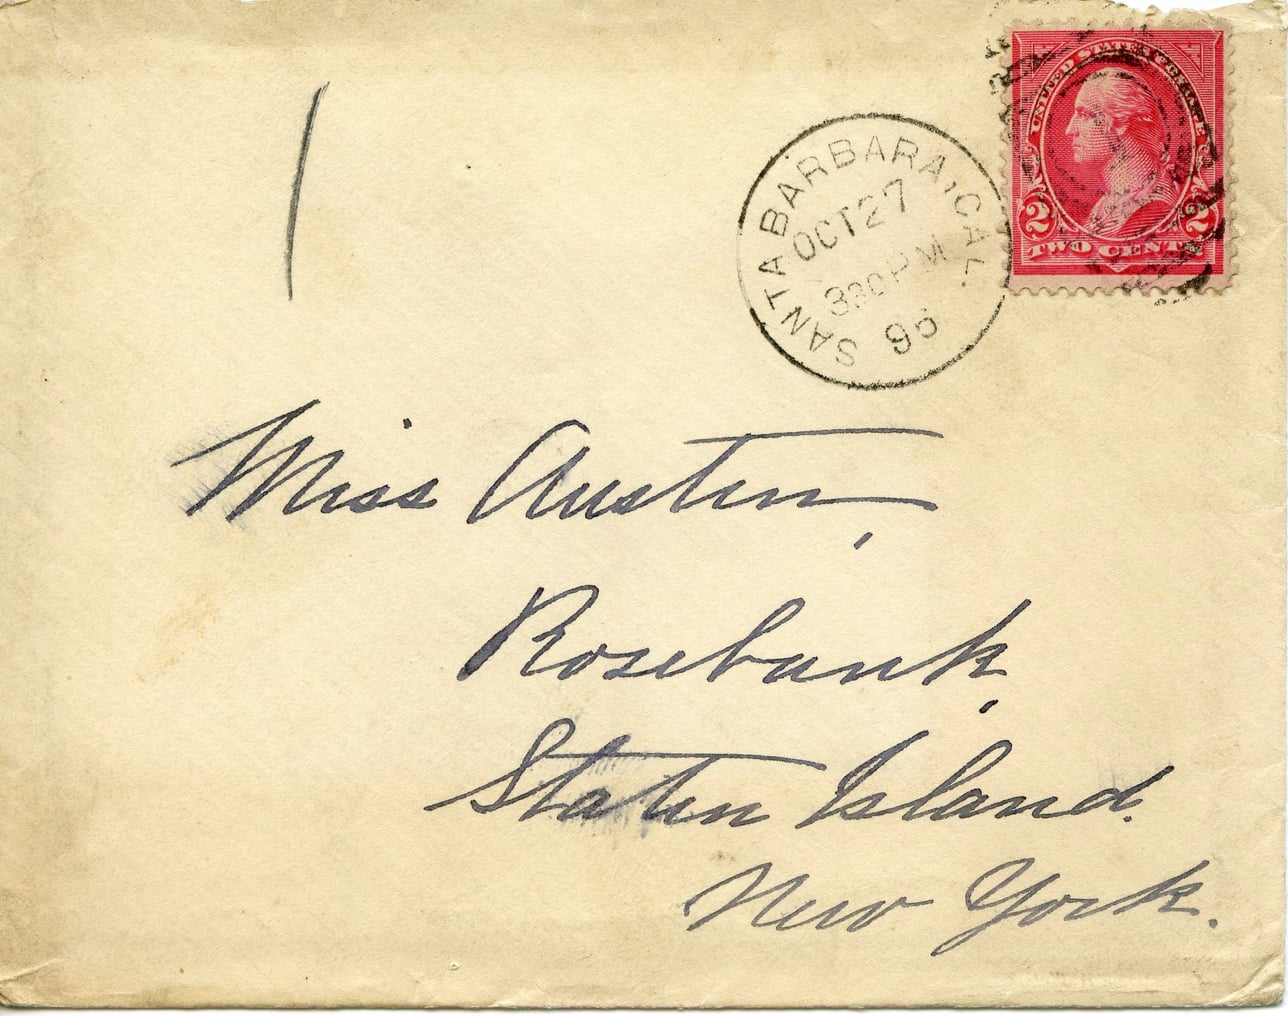 UNITED STATES POSTAGE
2 2
TWO CENTS
SANTA BARBARA, CAL.
OCT 27
330 PM
96
Miss Austin,
Rosebank,
Staten Island.
New York.